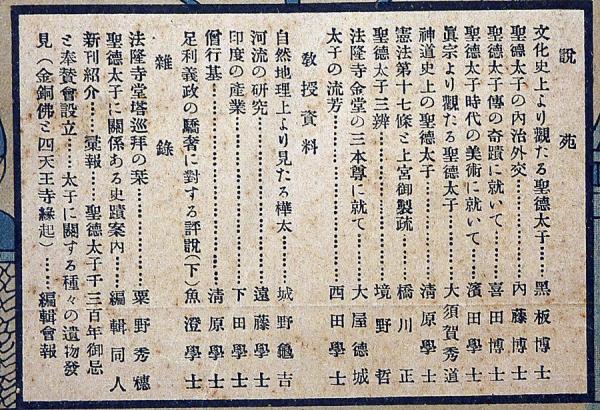 說苑
文化史上より觀たる聖德太子……黑板博士
聖德太子の內治外交……內藤博士
聖德太子傳の奇蹟に就いて……喜田博士
聖德太子時代の美術に就いて……濱田學士
眞宗より觀たる聖德太子……大須賀秀道
神道史上の聖德太子……淸原學士
憲法第十七條と上宮御製疏……橋川正
聖德太子三辨……境野哲
法隆寺金堂の三本尊に就て……大屋德城
太子の流芳……西田學士
敎授資料
自然地理上より見たる樺太……城野龜吉
河流の硏究……遠藤學士
印度の產業……下田學士
僧行基……淸原學士
足利義政の驕奢に對する評說(下)魚澄學士
雜錄
法隆寺堂塔巡拜の栞……粟野秀穗
聖德太子に關係ある史蹟案內……編輯同人
新刊紹介……彙報……聖德太子千三百年御忌
と奉贊會設立……太子に關する種々の遺物發
見(金銅佛と四天王寺緣起)……編輯會報